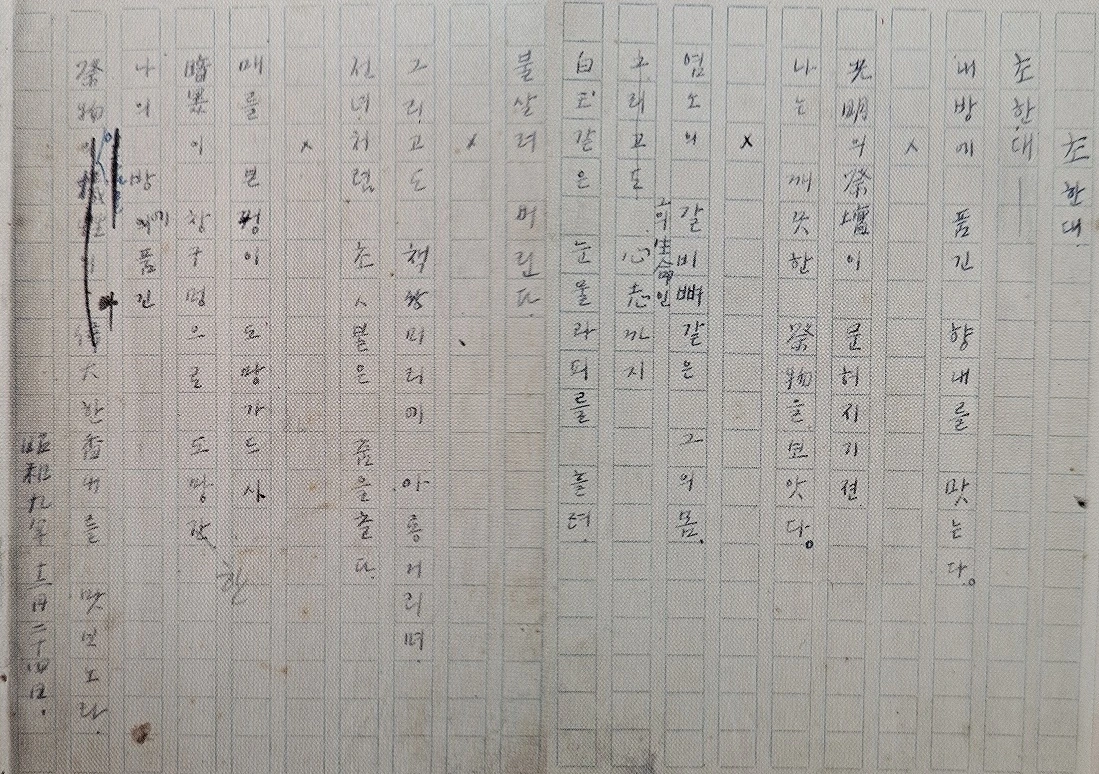 초한대
초한대—
내방에 품긴 향내를 맛는다。
×
光明의祭壇이 문허지기젼
나는 깨끗한 祭物을보앗다。
×
염소의 갈비뼈같은 그의몸.
그의生命인
그래고도 心志까지
白玉같은 눈물과피를 흘려
불살려 버린다.
×
그리고도 책상머리에 아롱거리며
선녀처럼 초ㅅ불은 춤을춘다.
×
매를 본꿩이 도망가드시
暗黑이 창구멍으로 도망간
한
나의 방에품긴
祭物의 偉大한香내를 맛보노라.
昭和九年 十二月二十四日.